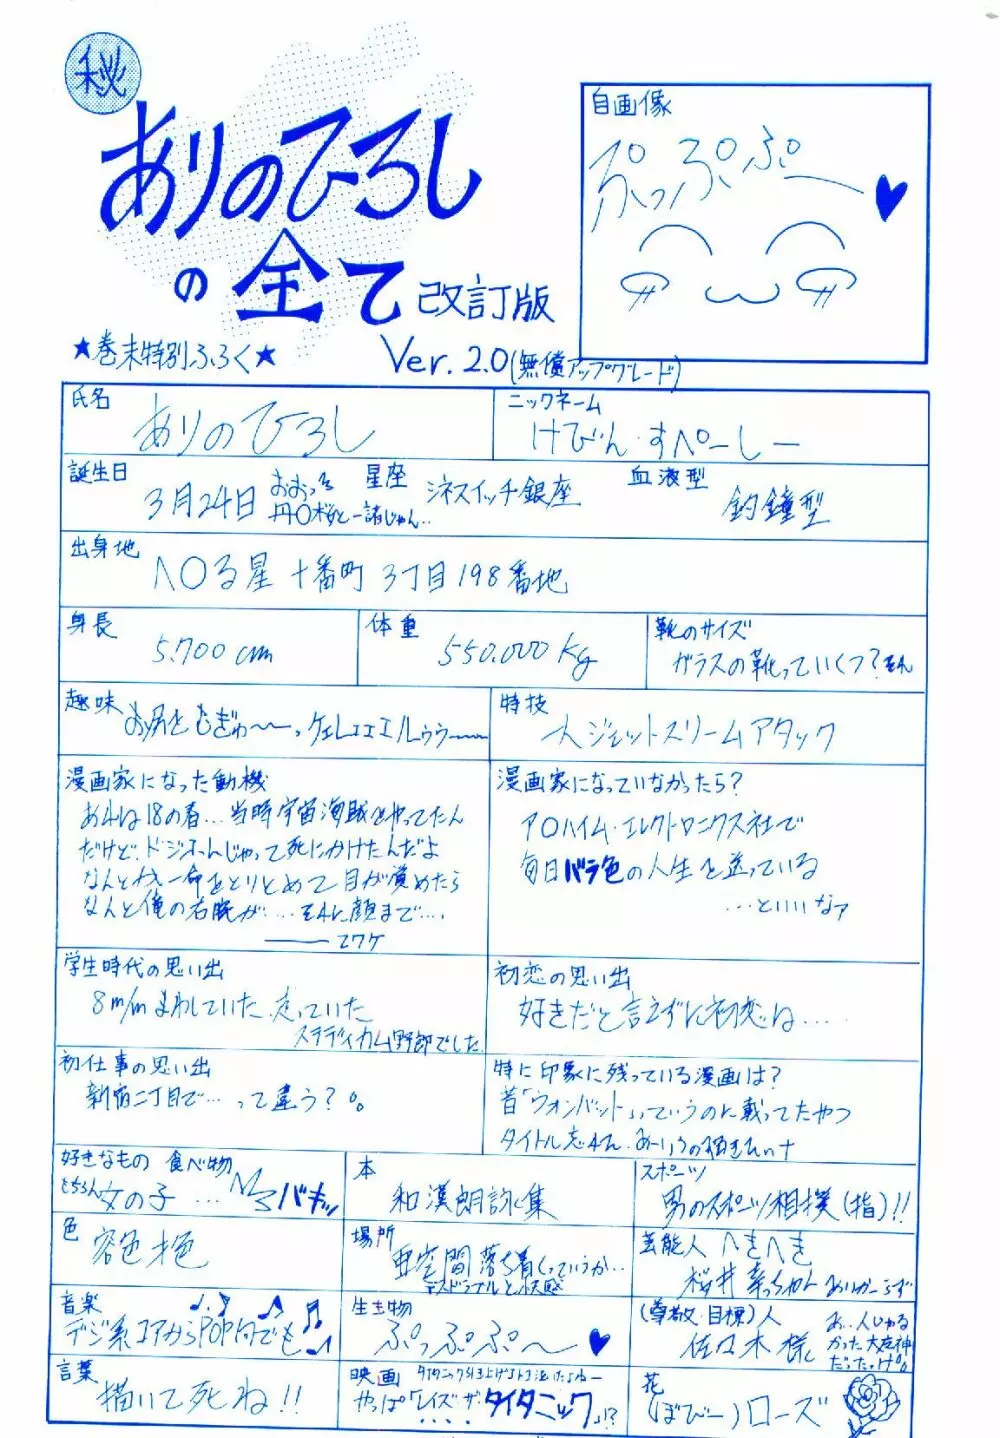 秘
ありのひろし
の全て 改訂版
★巻末特別ふろく★
Ver. 2.0(無償アップグレード)
自画像
ぷっぷぷー
氏名
ありのひろし
ニックネーム
けびん・すぺーしー
誕生日
3月24日 おおっそ
丹○桜と一諸じゃん‥
星座
シネスイッチ銀座
血液型
釣鐘型
出身地
ハ○る星 十番町 3丁目198番地
身長
5.700cm
体重
550.000Kg
靴のサイズ
ガラスの靴っていくつ?
趣味
お尻をむぎゅ〜〜っ
特技
大ジェットストリームアタック
漫画家になった動機
あれは18の春…当時宇宙海賊をやってたん
だけど、ドジふんじゃって死にかけたんだよ
なんとか一命をとりとめて目が覚めたら
なんと俺の右腕が‥‥それに顔まで‥‥
漫画家になっていなかったら?
ア○ハイム・エレクトロニクス社で
毎日バラ色の人生を送っている
…といいなァ
学生時代の思い出
8m/mまわしていた、走っていた
ステディカム野郎でした
初恋の思い出
好きだと言えずに初恋は‥‥
初仕事の思い出
新宿二丁目で…って違う?
特に印象に残っている漫画は?
昔「ウォンバット」っていうのに載ってたやつ
タイトル忘れた、
好きなもの 食べ物
もちろん女の子 … バキッ
本
和漢朗詠集
スポーツ
男のスポーツ相撲(指)!!
色
容色才色
場所
亜空間 落ち着くっていうか…
芸能人 へきへき
桜井幸っちゃん
音楽
デジ系コアからPOP的でも
生き物
ぷっぷぷ〜
(尊敬・目標)人
佐々木様
言葉
描いて死ね!!
映画
やっぱ「レイズ・ザ・タイタニック」!?
花
(ぼびー)ローズ